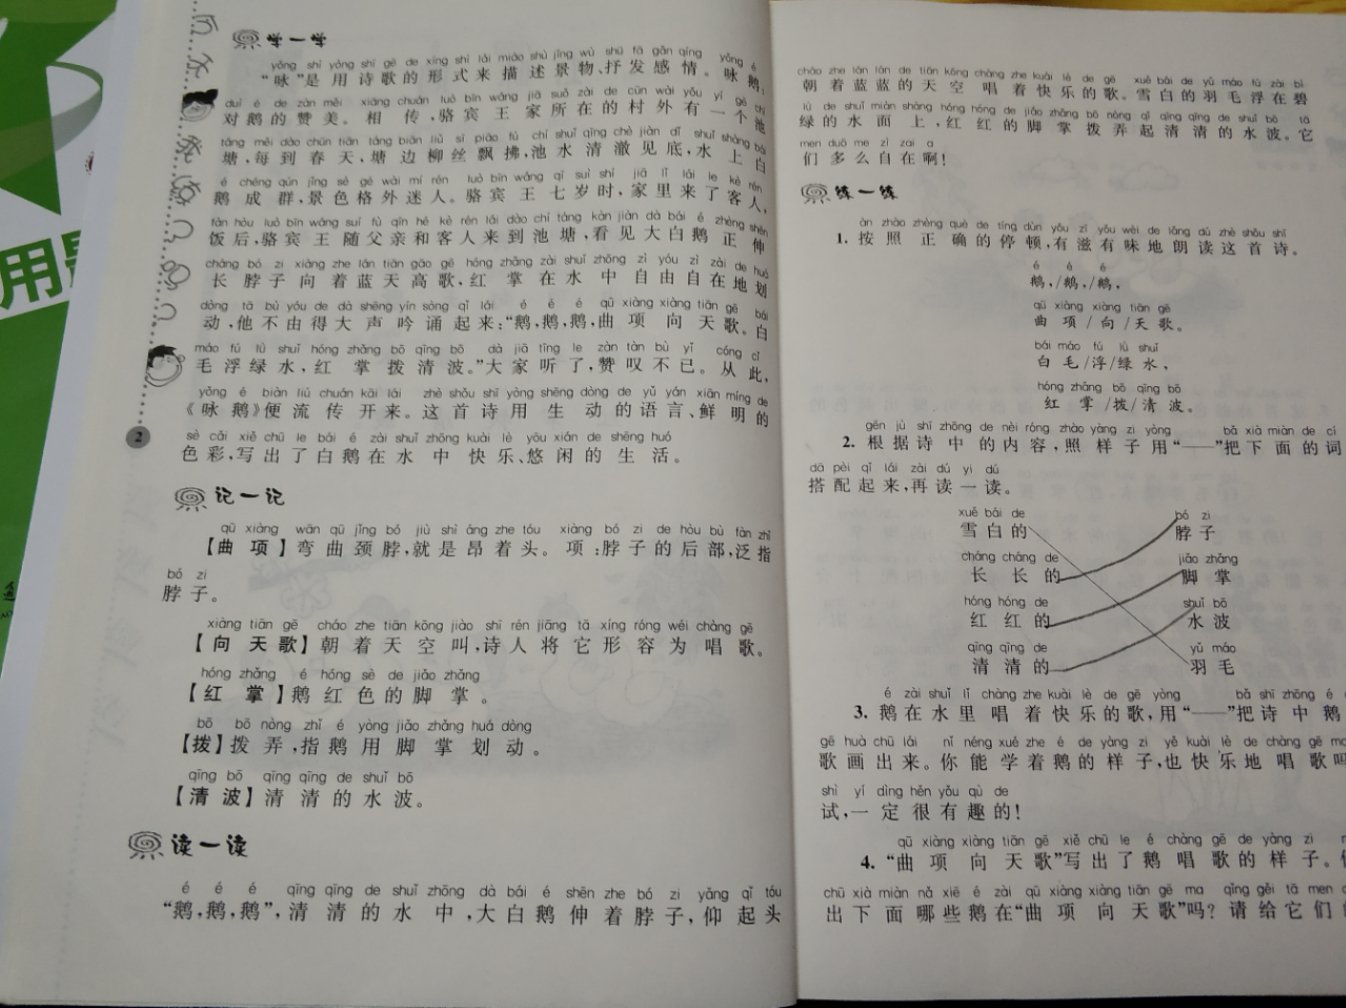 用
学一学
yǒng shì yòng shī gē de xíng shì lái miáo shù jǐng wù shū fā gǎn qíng yǒng é
“咏”是用诗歌的形式来描述景物、抒发感情。咏鹅,
duì é de zàn měi xiāng chuán luò bīn wáng jiā suǒ zài de cūn wài yǒu yí gè chí
对鹅的赞美。相传,骆宾王家所在的村外有一个池
táng měi dào chūn tiān táng biān liǔ sī piāo fú chí shuǐ qīng chè jiàn dǐ shuǐ shàng bái
塘,每到春天,塘边柳丝飘拂,池水清澈见底,水上白
é chéng qún jǐng sè gé wài mí rén luò bīn wáng qī suì shí jiā lǐ lái le kè rén
鹅成群,景色格外迷人。骆宾王七岁时,家里来了客人,
fàn hòu luò bīn wáng suí fù qīn hé kè rén lái dào chí táng kàn jiàn dà bái é zhèng shēn
饭后,骆宾王随父亲和客人来到池塘,看见大白鹅正伸
cháng bó zi xiàng zhe lán tiān gāo gē hóng zhǎng zài shuǐ zhōng zì yóu zì zài de huá
长脖子向着蓝天高歌,红掌在水中自由自在地划
dòng tā bù yóu de dà shēng yín sòng qǐ lái é é é qū xiàng xiàng tiān gē bái
动,他不由得大声吟诵起来:“鹅,鹅,鹅,曲项向天歌。白
máo fú lǜ shuǐ hóng zhǎng bō qīng bō dà jiā tīng le zàn tàn bù yǐ cóng cǐ
毛浮绿水,红掌拨清波。”大家听了,赞叹不已。从此,
yǒng é biàn liú chuán kāi lái zhè shǒu shī yòng shēng dòng de yǔ yán xiān míng de
《咏鹅》便流传开来。这首诗用生动的语言、鲜明的
2
sè cǎi xiě chū le bái é zài shuǐ zhōng kuài lè yōu xián de shēng huó
色彩,写出了白鹅在水中快乐、悠闲的生活。
记一记
qū xiàng wān qū jǐng bó jiù shì áng zhe tóu xiàng bó zi de hòu bù fàn zhǐ
【曲项】弯曲颈脖,就是昂着头。项:脖子的后部,泛指
bó zi
脖子。
xiàng tiān gē cháo zhe tiān kōng jiào shī rén jiāng tā xíng róng wéi chàng gē
【向天歌】朝着天空叫,诗人将它形容为唱歌。
hóng zhǎng é hóng sè de jiǎo zhǎng
【红掌】鹅红色的脚掌。
bō bō nòng zhǐ é yòng jiǎo zhǎng huá dòng
【拨】拨弄,指鹅用脚掌划动。
qīng bō qīng qīng de shuǐ bō
【清波】清清的水波。
读一读
é é é qīng qīng de shuǐ zhōng dà bái é shēn zhe bó zi yǎng qǐ tóu
“鹅,鹅,鹅”,清清的水中,大白鹅伸着脖子,仰起头
cháo zhe lán lán de tiān kōng chàng zhe kuài lè de gē xuě bái de yǔ máo fú zài bì
朝着蓝蓝的天空唱着快乐的歌。雪白的羽毛浮在碧
lǜ de shuǐ miàn shàng hóng hóng de jiǎo zhǎng bō nòng qǐ qīng qīng de shuǐ bō tā
绿的水面上,红红的脚掌拨弄起清清的水波。它
men duō me zì zai a
们多么自在啊!
练一练
àn zhào zhèng què de tíng dùn yǒu zī yǒu wèi de lǎng dú zhè shǒu shī
1. 按照正确的停顿,有滋有味地朗读这首诗。
é é é
鹅,/鹅,/鹅,
qū xiàng xiàng tiān gē
曲项/向/天歌。
bái máo fú lǜ shuǐ
白毛/浮/绿水,
hóng zhǎng bō qīng bō
红掌/拨/清波。
gēn jù shī zhōng de nèi róng zhào yàng zi yòng bǎ xià miàn de cí
2. 根据诗中的内容,照样子用“——”把下面的词
dā pèi qǐ lái zài dú yi dú
搭配起来,再读一读。
xuě bái de bó zi
雪白的 脖子
cháng cháng de jiǎo zhǎng
长长的 脚掌
hóng hóng de shuǐ bō
红红的 水波
qīng qīng de yǔ máo
清清的 羽毛
é zài shuǐ lǐ chàng zhe kuài lè de gē yòng bǎ shī zhōng é
3. 鹅在水里唱着快乐的歌,用“——”把诗中鹅
gē huà chū lái nǐ néng xué zhe é de yàng zi yě kuài lè de chàng gē ma
歌画出来。你能学着鹅的样子,也快乐地唱歌吗
shì yí dìng hěn yǒu qù de
试,一定很有趣的!
qū xiàng xiàng tiān gē xiě chū le é chàng gē de yàng zi
4. “曲项向天歌”写出了鹅唱歌的样子。
chū xià miàn nǎ xiē é zài qū xiàng xiàng tiān gē ma qǐng gěi tā men
出下面哪些鹅在“曲项向天歌”吗?请给它们